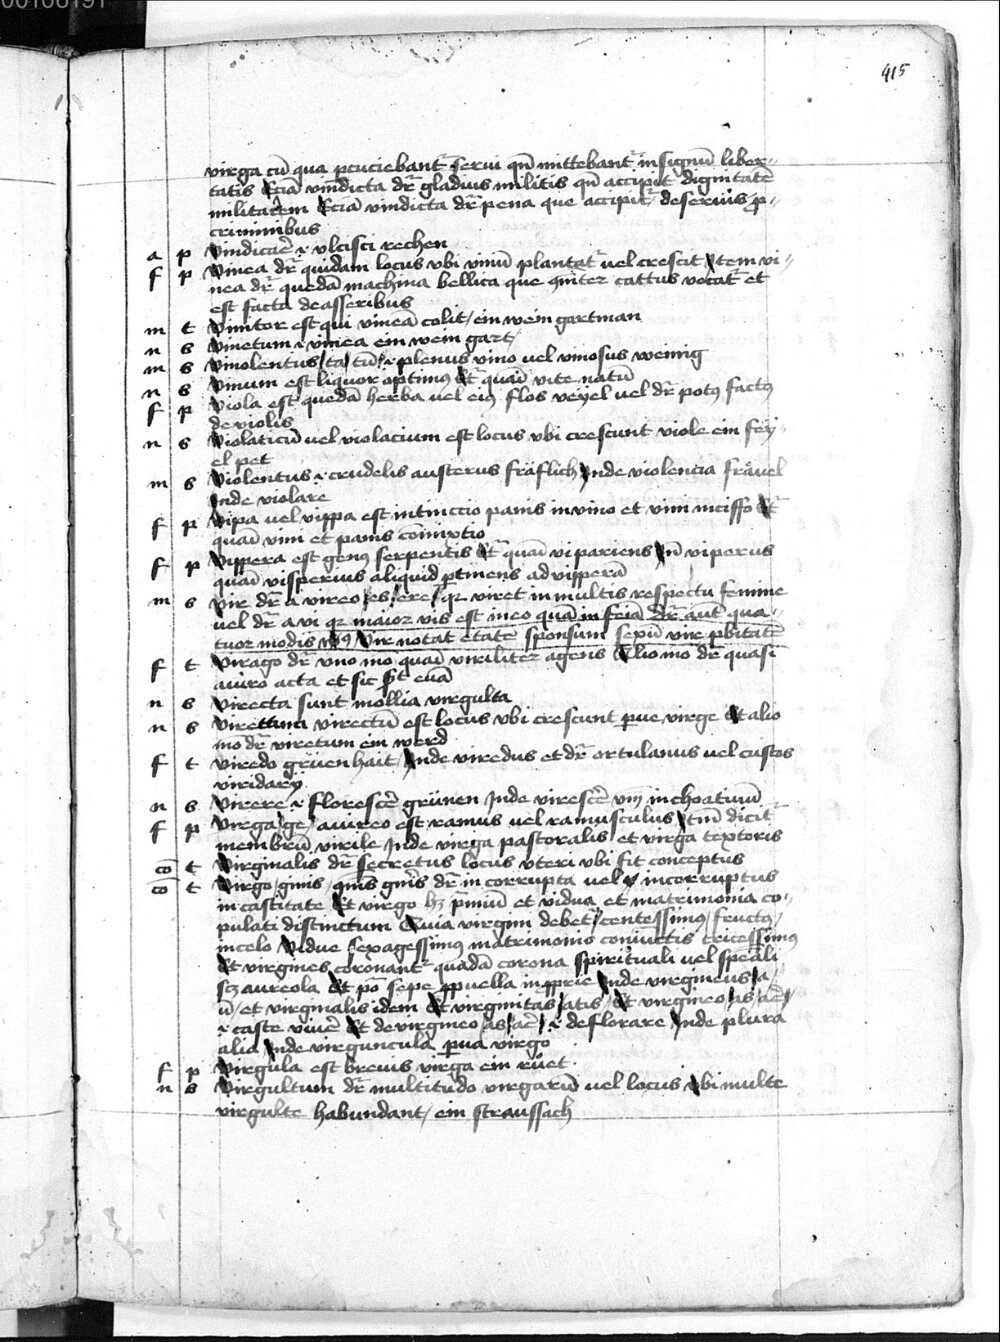 00106191
415
virga cū qua pcuciebant̄ serui qn̄ mittebant̄ in signū liber=
tatis Eciā vindicta dr̄ gladius militis qn̄ accipit dignitatē
militarem Eciā vindicta dr̄ pena que accipit̄ de seruis p=
criminibus
a p Vindicar̄e ulcisci rechen
f p Vinea dr̄ quidam locus vbi vinū plantat̄ vel crescit Item vi=
nea dr̄ quedā machina bellica que cattus vocat̄ et
est facta de asseribus
m t Vinitor est qui vineā colit / ein wein gartman
n s Vinetum vinea ein wein gart /
m s Vinolentus / ta / tū / plenus vino vel vinosus weinig
n s Vinum est liquor optimus Et quasi vite natū
f p Viola est quedā herba vel eiꝰ flos veyel vel dr̄ potꝰ factꝰ
de violis
n s Violaticū vel violacium est locus vbi crescunt viole ein fey=
el pet
m s Violentus crudelis austerus fräflich Inde violencia fräuel
Inde violare
f p Vipa vel vippa est intinccio panis in vino et vini
quasi vini et panis conmixtio
f p Vippera est genus serpentis quasi vi pariens viperus
quasi visperius aliquid ptinens ad vipperā
m s Vir dr̄ a vireo / es / ere / qr viret in multis respectu femine
vel dr̄ a vi qr maior vis est in eo quā in feīa dr̄ aut̄ qua=
tuor modis Vir notat etate sponsum sexū vir pbitatē
f t Virago dr̄ vno mo quasi viriliter agens Alio mo dr̄ quasi
a viro acta et sic evā
n s Virecta sunt mollia virgulta
n s virectū est locus vbi crescunt pue virge Et alio
mo dr̄ viretum ein werd
f t Viredo grüen hait / Inde viredus et dr̄ ortulanus vel custos
viridarÿ
n s Virere florescer̄e grünen Inde virescer̄e inchoatiuū
f p Virga / ge / a vireo est ramus vel ramusculus Itm̄ dicit̄
membrū virile Inde virga pastoralis et virga textoris
co t Virginalis dr̄ secretus locus vteri vbi fit conceptus
co t Virgo / ginis / dr̄ incorrupta vel incorruptus
in castitate Et virgo hꝫ pmiū et vidua et matrimonia co=
pulati distinctum Quia virgini debet̄ centessimus / fructꝰ /
in celo Vidue sexagessimus matrimonio coniuctis tricessimus
Et virgines coronant̄ quadā corona spirituali vel spēali
scꝫ aureola Et po sepe p puella inpprie Inde virgineus / a /
ū / et virginalis idem Et virginitas / atis / Et virgineo / as / ar̄e /
caste viuer̄e Et devirgineo / as / ar̄e / deflorare Inde plura
alia Inde virguncula pua virgo
f p Virgula est breuis virga ein rüet
n s Virgultum dr̄ multitudo virgarū vel locus vbi multe
virgulte habundant / ein straussach